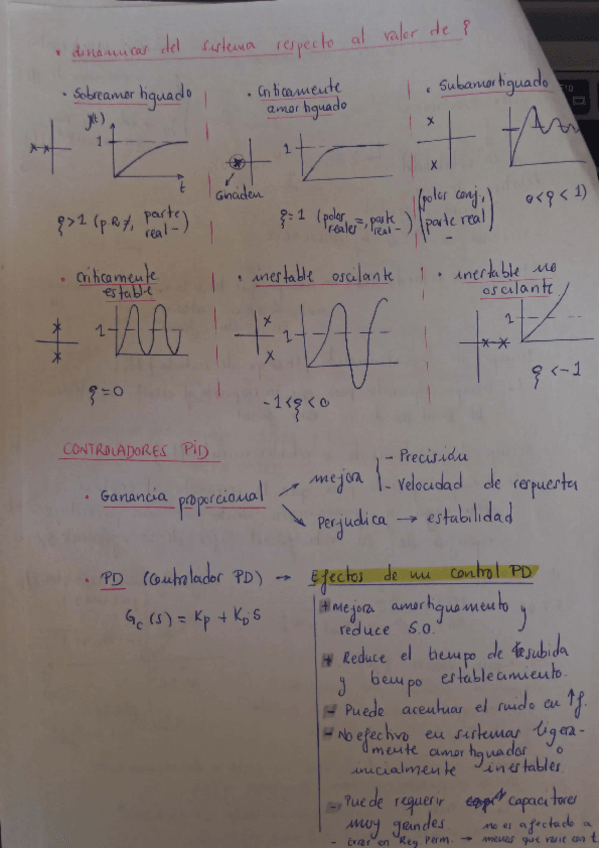 • dinámicas del sistema respecto al valor de ξ
• Sobreamortiguado
y(t)
1
t
ξ>1 (p.R.≠, parte real -)
• Criticamente amortiguado
1
Coinciden
ξ=1 (polos reales =, parte real -)
• Subamortiguado
(polos conj., parte real -)
0<ξ<1)
• Criticamente estable
1
ξ=0
• inestable oscilante
1
-1<ξ<0
• inestable no oscilante
1
ξ<-1
CONTROLADORES PID
• Ganancia proporcional
→ mejora
- Precisión
- Velocidad de respuesta
→ perjudica → estabilidad
• PD (Controlador PD) → Efectos de un control PD
Gc(s) = Kp + KD·S
+ Mejora amortiguamento y
reduce S.O.
+ Reduce el tiempo de subida
y tiempo establecimiento.
- Puede acentuar el ruido en ↑f.
- No efectivo en sistemas ligera-
mente amortiguados o
inicialmente inestables.
- Puede requerir capacitores
muy grandes
- Error en Reg. Perm. → no es afectado a
menos que varie con t